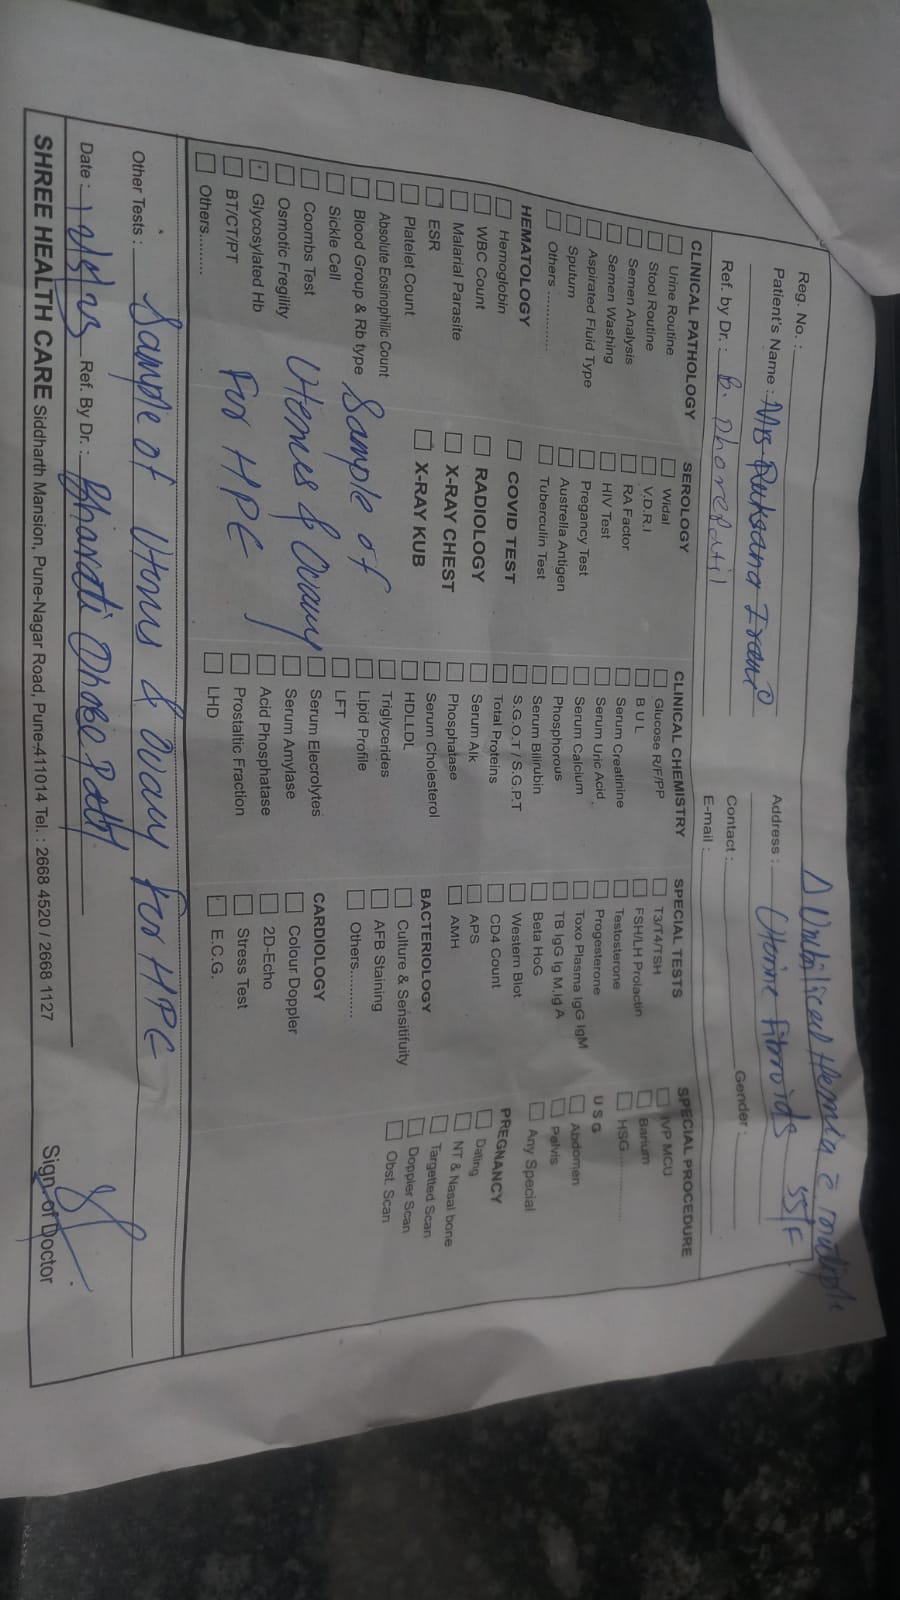 Δ Umbilical Hernia c̄ multiple
Uterine fibroids 55/F
Reg. No. :
Patient's Name : Mrs Ruksana Irani
Address :
Ref. by Dr. : B. Dhorepatil
Contact : Gender :
E-mail :
CLINICAL PATHOLOGY
Urine Routine
Stool Routine
Semen Analysis
Semen Washing
Aspirated Fluid Type
Sputum
Others ..............
HEMATOLOGY
Hemoglobin
WBC Count
Malarial Parasite
ESR
Platelet Count
Absolute Eosinophilic Count
Blood Group & Rb type
Sickle Cell
Coombs Test
Osmotic Fregility
Glycosylated Hb
BT/CT/PT
Others.........
SEROLOGY
Widal
V.D.R.I
RA Factor
HIV Test
Pregancy Test
Australia Antigen
Tuberculin Test
COVID TEST
RADIOLOGY
X-RAY CHEST
X-RAY KUB
Sample of
Uterus & Ovary
For HPE
CLINICAL CHEMISTRY
Glucose R/F/PP
B U L
Serum Creatinine
Serum Uric Acid
Serum Calcium
Phosphorous
Serum Bilirubin
S.G.O.T / S.G.P.T
Total Proteins
Serum Alk
Phosphatase
Serum Cholesterol
HDLLDL
Triglycerides
Lipid Profile
LFT
Serum Elecrolytes
Serum Amylase
Acid Phosphatase
Prostaltic Fraction
LHD
SPECIAL TESTS
T3/T4/TSH
FSH/LH Prolactin
Testosterone
Progesterone
Toxo Plasma IgG IgM
TB IgG Ig M,Ig A
Beta HoG
Western Blot
CD4 Count
APS
AMH
BACTERIOLOGY
Culture & Sensitifuity
AFB Staining
Others...........
CARDIOLOGY
Colour Doppler
2D-Echo
Stress Test
E.C.G.
SPECIAL PROCEDURE
IVP MCU
Barium
HSG..............
U S G
Abdomen
Pelvis
Any Special
PREGNANCY
Dating
NT & Nasal bone
Targetted Scan
Doppler Scan
Obst. Scan
Other Tests : Sample of Uterus & Ovary For HPE
Date : Ref. By Dr. : Bharati Dhorepatil
Sign of Doctor
SHREE HEALTH CARE Siddharth Mansion, Pune-Nagar Road, Pune-411014 Tel. : 2668 4520 / 2668 1127